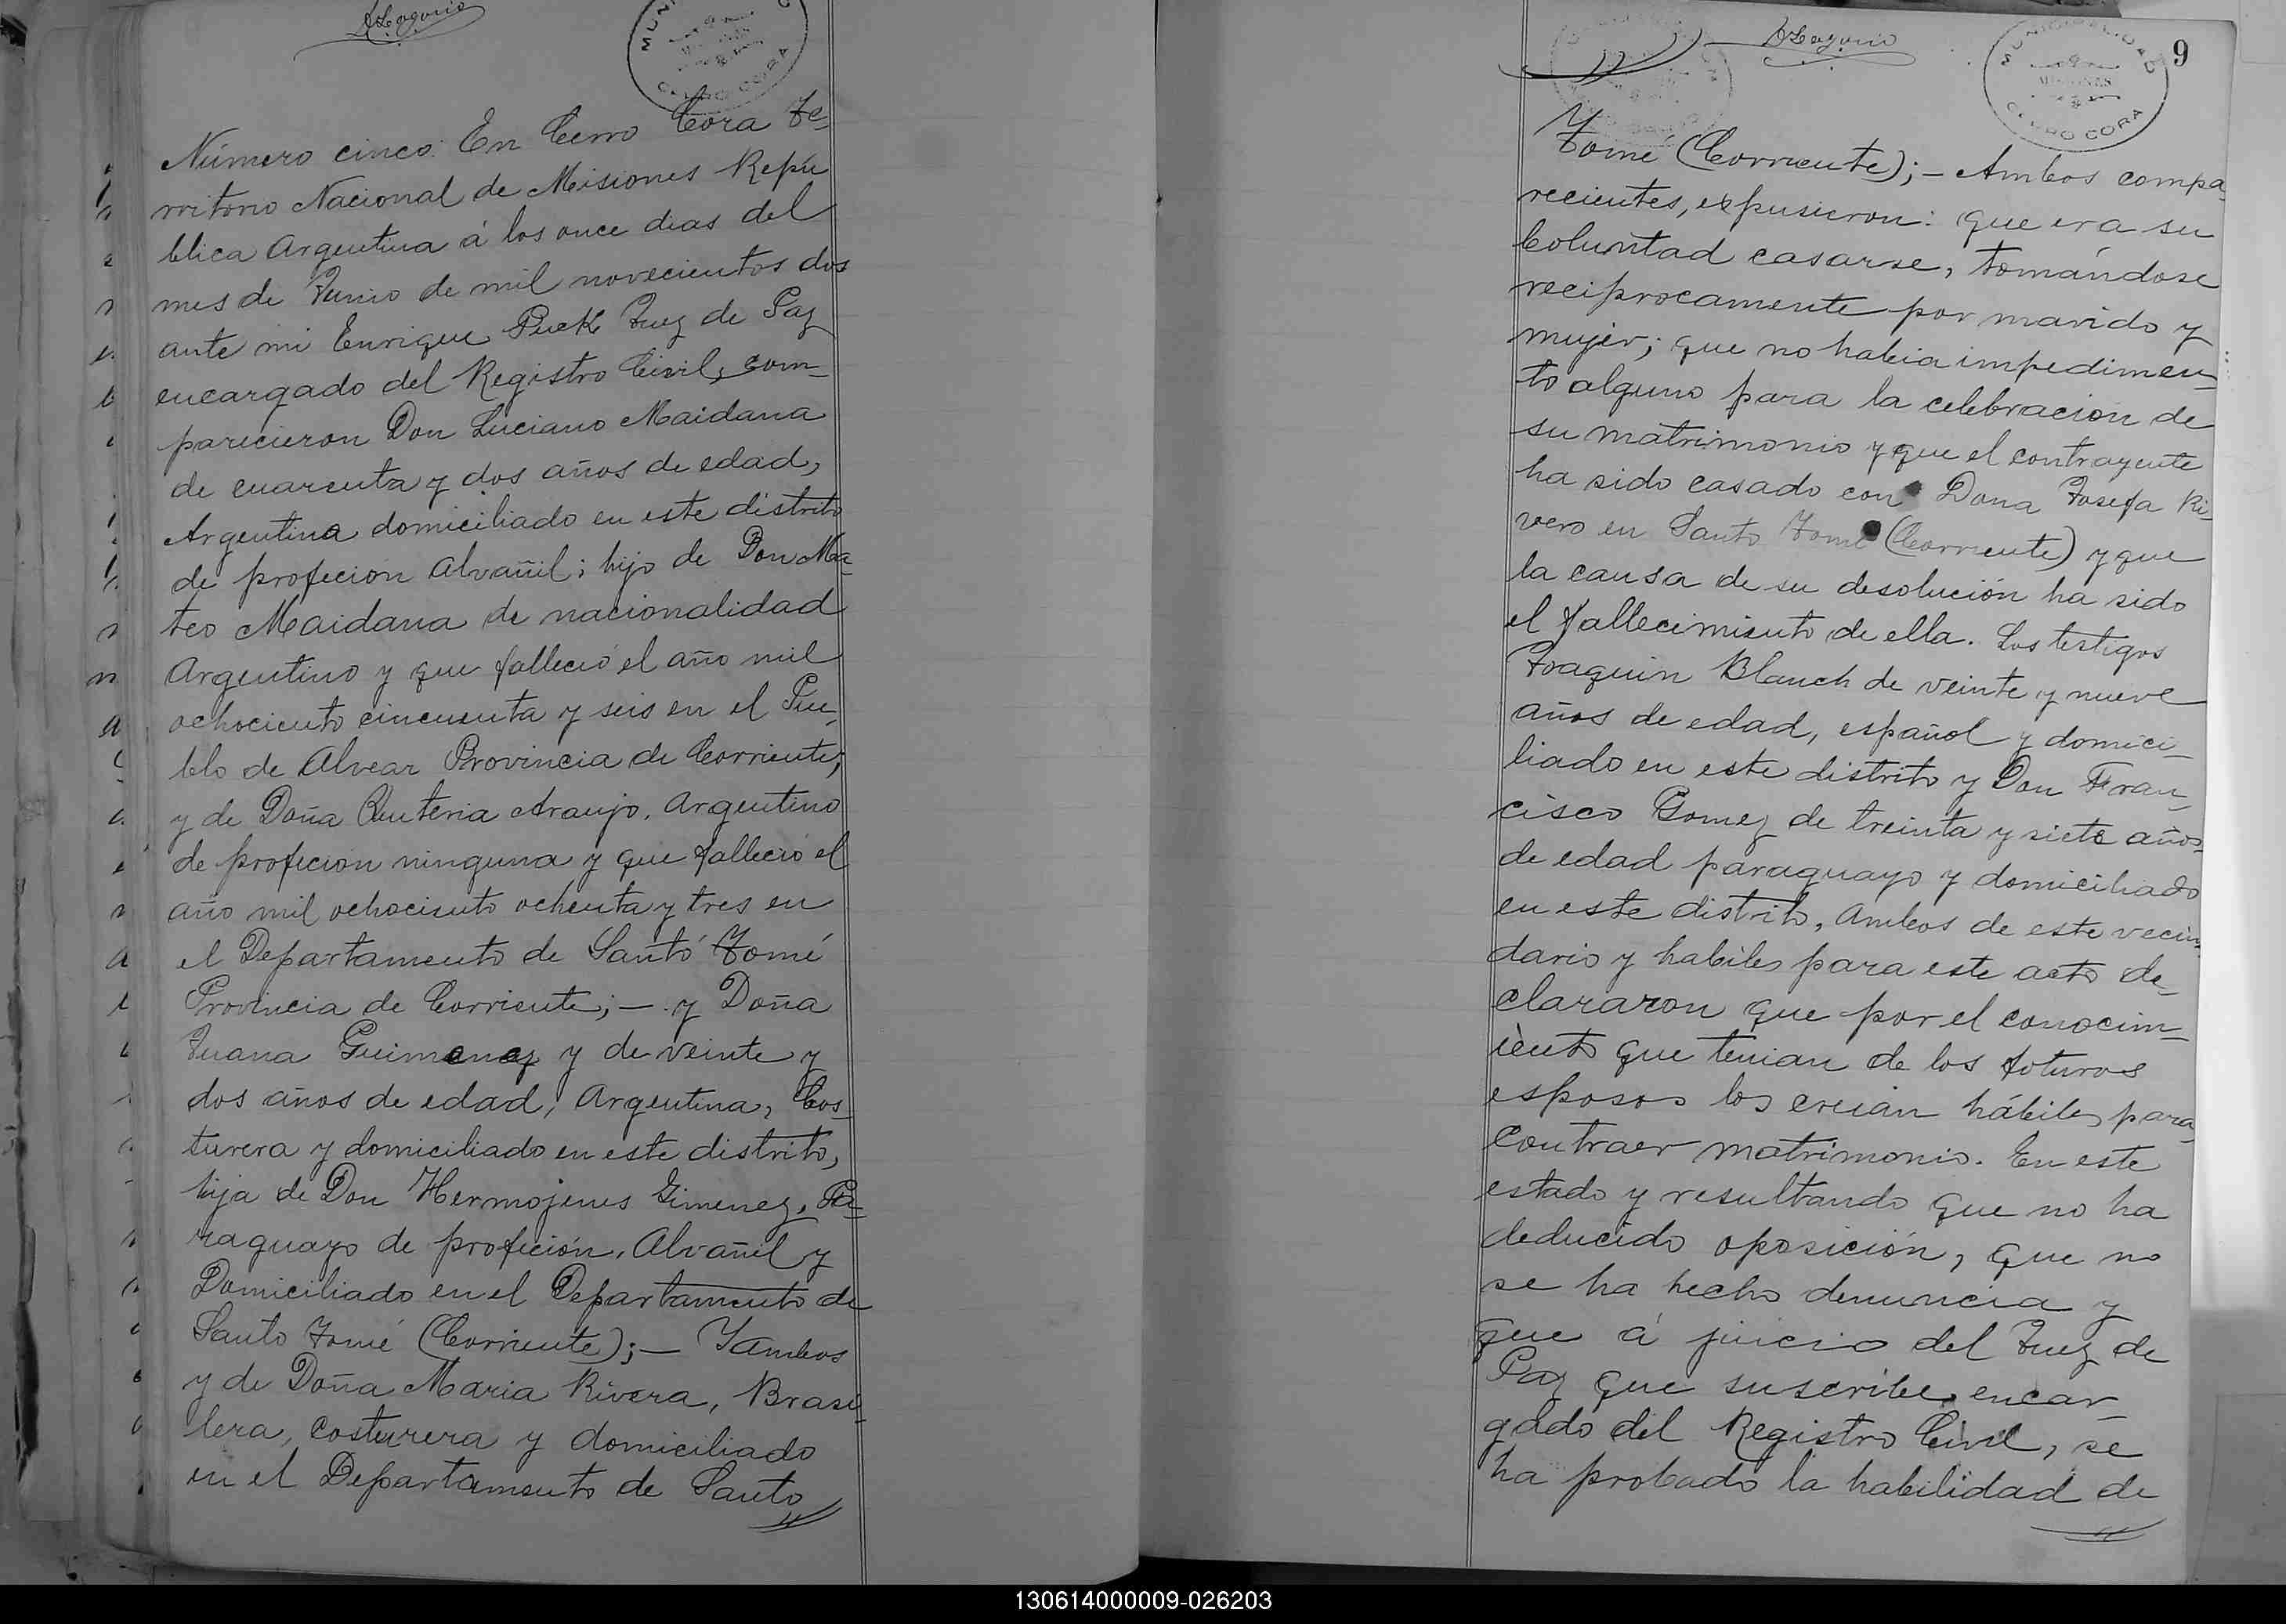 MUNICIPALIDAD
MISIONES
CERRO CORA
Número cinco. En Cerro Cora Te-
rritorio Nacional de Misiones Repú
blica Argentina á los once dias del
mes de Junio de mil novecientos dos
ante mi Enrique Puck Juez de Paz
encargado del Registro Civil, com-
parecieron Don Luciano Maidana
de cuarenta y dos años de edad,
Argentina domiciliado en este distrito
de profecion Alvañil; hijo de Don Ma-
teo Maidana de nacionalidad
Argentino y que falleció el año mil
ochociento cincuenta y seis en el Pue-
blo de Alvear Provincia de Corriente,
y de Doña Quiteria Araujo, Argentino
de profecion ninguna y que fallecio el
año mil ochociento ochenta y tres en
el Departamento de Santo Tomé
Provincia de Corriente;- y Doña
Juana Guimenez y de veinte y
dos años de edad, Argentina, Cos-
turera y domiciliado en este distrito,
hija de Don Hermojenes Gimenez, Pa-
raguayo de profeción, Alvañil y
Domiciliado en el Departamento de
Santo Tomé (Corriente);- Yambos
y de Doña Maria Rivera, Brasi-
lera, costurera y domiciliado
en el Departamento de Santo
9
MUNICIPALIDAD
MISIONES
CERRO CORA
Tomé (Corriente);- Ambos compa-
recientes, expusieron: que era su
boluntad casarse, tomándose
reciprocamente por marido y
mujer; que no habia impedimen-
to alguno para la celebracion de
su matrimonio y que el contrayente
ha sido casado con Dona Josefa Ri-
vero en Santo Tomé (Corriente) y que
la causa de su desolución ha sido
el fallecimiento de ella. Los testigos
Joaquin Blanch de veinte y nueve
años de edad, español y domici-
liado en este distrito y Don Fran-
cisco Gomez de treinta y siete años
de edad paraguayo y domiciliado
en este distrito, Ambos de este vecin-
dario y habiles para este acto de-
clararon que por el conocim-
iento que tenian de los foturos
esposos los creian hábiles para
contraer matrimonio. En este
estado y resultando que no ha
deducido oposición, que no
se ha hecho denuncia y
que á juicio del Juez de
Paz que suscribe, encar-
gado del Registro Civil, se
ha probado la habilidad de
130614000009-026203